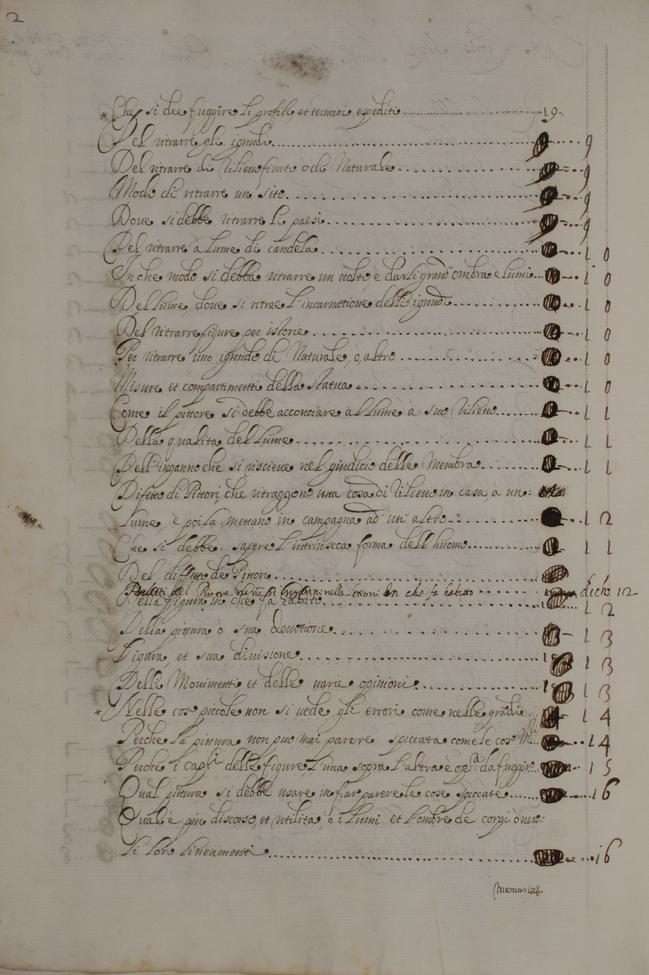 2
* Che si dee fuggire li profili et termini espediti 19
Del ritrarre gli ignudi 9
Del ritrarre di rilievo finito o del Naturale 9
Modo di ritrarre un sito 9
Dove si debbe ritrarre li paesi 9
Del ritrarre a lume di candela 10
In che modo si debba ritrarre un volto e darli grand ombra e lumi 10
Del lume dove si ritrae l'incarnatione delli ignudi 10
Del ritrarre figure per istorie 10
Per ritrarre uno ignudo di Naturale o altro 10
Misure et compartimenti della statua 10
Come il pittore si debbe acconciare al lume à suo rilievo 11
Della qualita del lume 11
Dell'inganno che si riscieve nel giudicio delle Membra 11
Difetto di Pittori, che ritraggono una cosa di rilievo in casa à un:
lume, è poi la mettano in campagna ad un altro 12
Che si debbe sapere l'intrinseca forma dell huomo 11
Del difetto de Pittori
del Pittore che in che fa habito dich 12
Della figura in che fa habito 12
Della pittura o sua devotione 13
Figura et sua divisione 13
Delli Movimenti et delle varie opinioni 13
* Nelle cose piccole non si vede gli errori come nelle grandi 14
Perche la pittura non puo mai parere spiccata come le cose 14
Perche i capi delle figure l'una sopra l'altra è da fuggir 15
Qual pittura si debbe usare in far parere le cose spiccate 16
Qual è piu discorso, et utilita ò i lumi et l'ombre de corpi o ver:
li loro lineamenti 16
Memoria